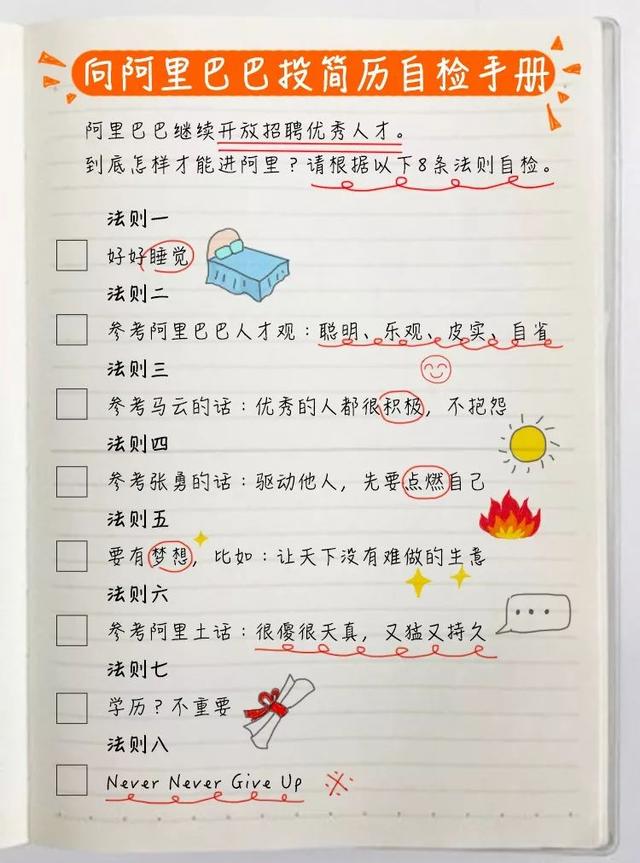 向阿里巴巴投简历自检手册
阿里巴巴继续开放招聘优秀人才。
到底怎样才能进阿里？请根据以下8条法则自检。
法则一
好好睡觉
法则二
参考阿里巴巴人才观：聪明、乐观、皮实、自省
法则三
参考马云的话：优秀的人都很积极，不抱怨
法则四
参考张勇的话：驱动他人，先要点燃自己
法则五
要有梦想，比如：让天下没有难做的生意
法则六
参考阿里土话：很傻很天真，又猛又持久
法则七
学历？不重要
法则八
Never Never Give Up